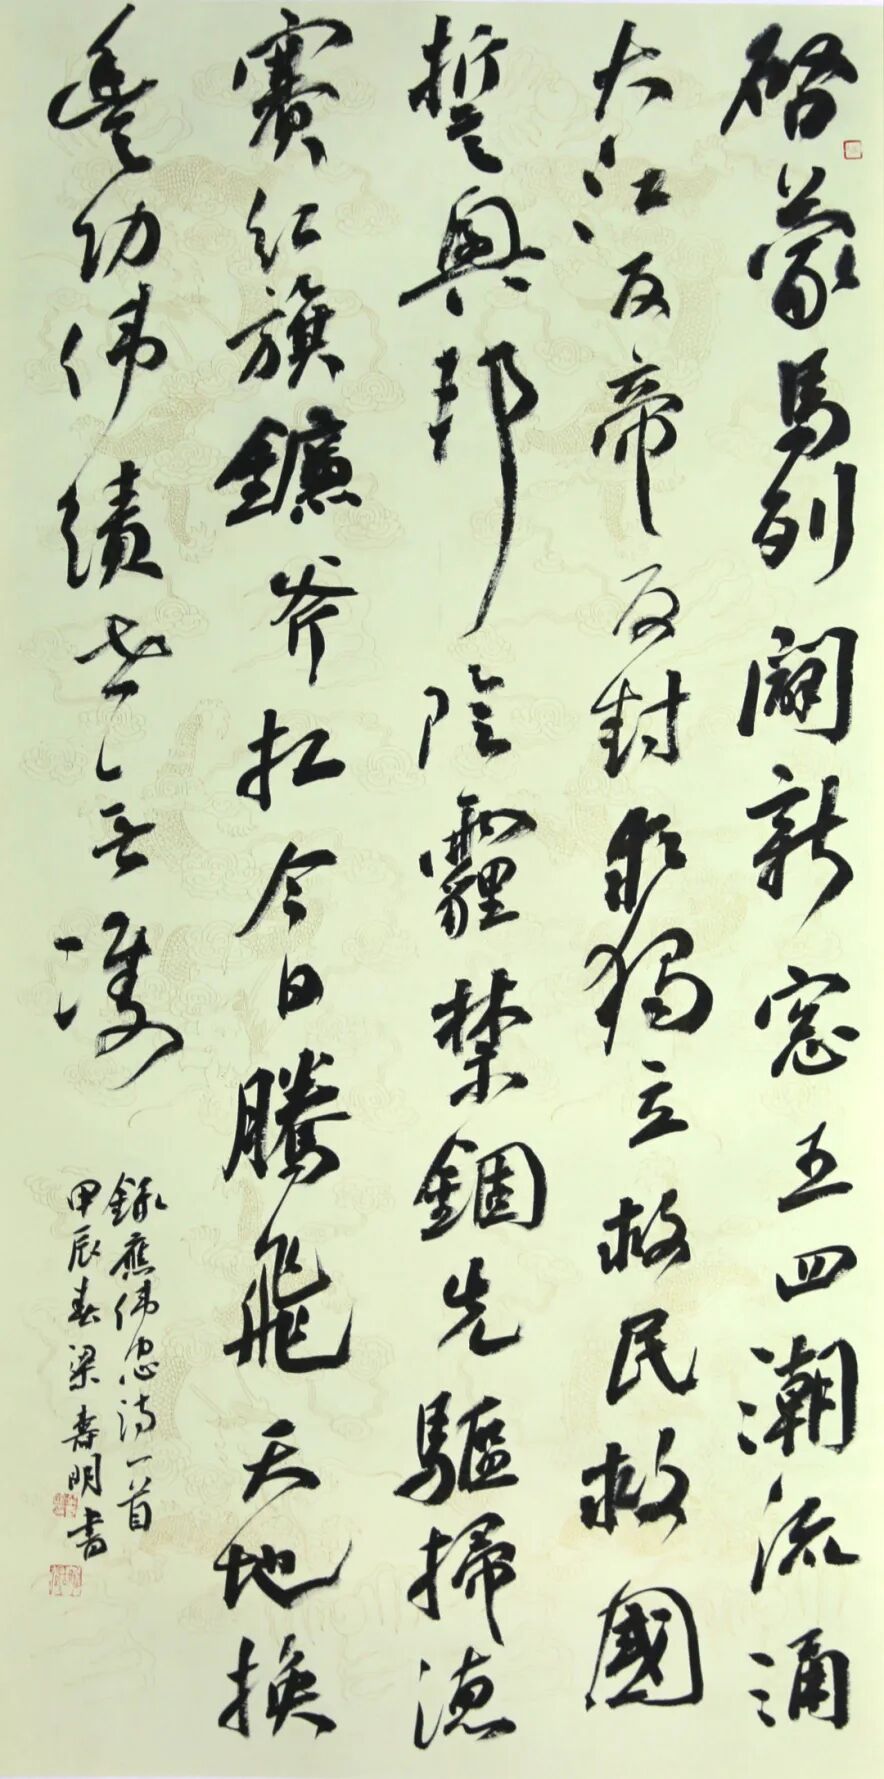 啓蒙馬列闢新窓五四潮流涌
大江反帝反封求獨立救民救國
誓興邦陰霾禁錮先驅掃德
賽紅旗鐮斧扛今日騰飛天地換
豊功偉績世無雙
錄應偉忠詩一首
甲辰春梁壽明書